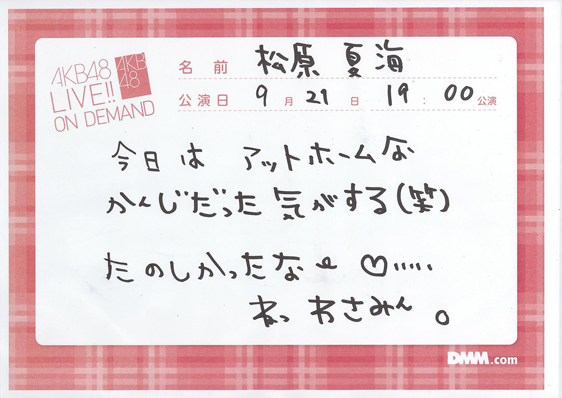 AKB48
LIVE!!
ON DEMAND
AKB
48
名前 松原 夏海
公演日 9月21日 19:00公演
今日は アットホームな
かんじだった気がする(笑)
たのしかったなー♡‥‥‥
ねっ わさみん。
DMM.com